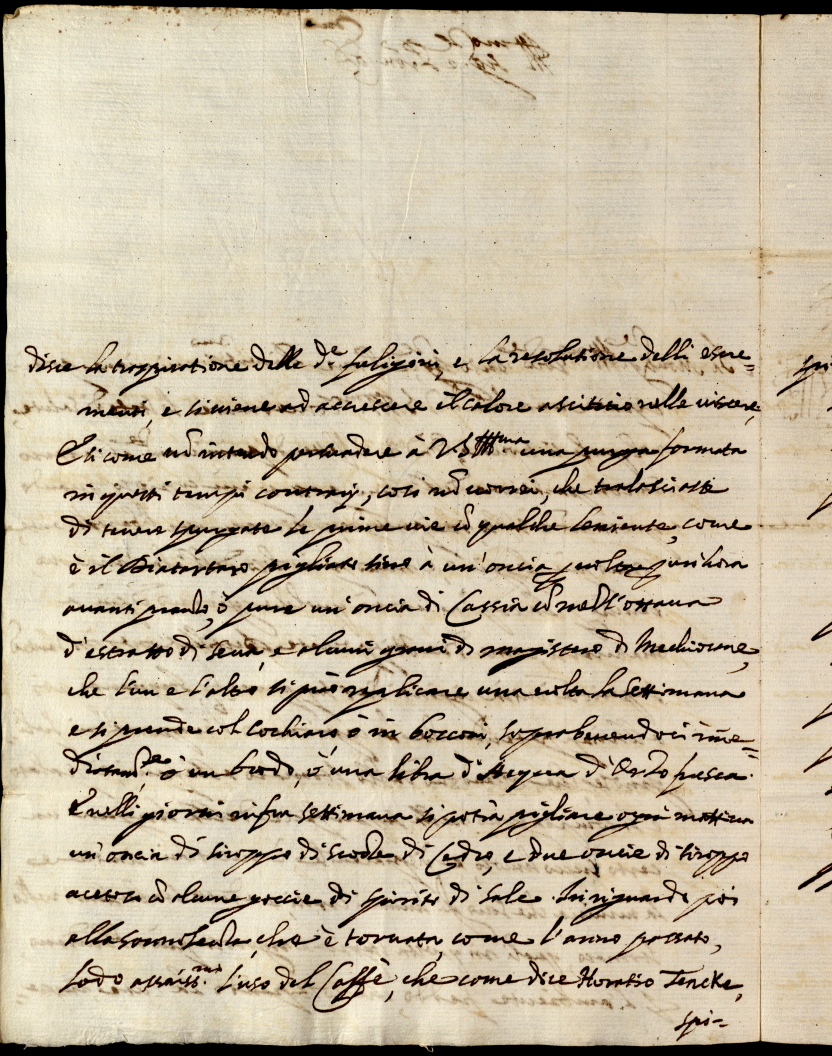 disce la traspiratione delle d.e fuligini, e la resolutione delli escre=
menti, e si viene ad accrescere il calore ascititio nelle viscere,
E si come nõ intendo persuadere à V.S. Ill.ma una purga formata
in questi tempi contrarij, così nõ vorrei, che tralasciasse
di tenere spurgate le prime vie cõ qualche leniente, come
è il Diatartaro pigliato sino à un'oncia per volta per un'hora
avanti pranzo, ò pure un'oncia di Cassia cõ mezz'ottava
d'estratto di sena, e alcuni grani di magistero di Mechiocane,
che l'un e l'altro si può replicare una volta la settimana
e si prende col cochiaro ò in bocconi, soprabevendoci ime=
diatam.te ò un brodo, ò una libra d'Acqua d'Orzo fresca.
E nelli giorni infra settimana si potrà pigliare ogni mattina
un'oncia di siroppo di scorze di Cedro, e due oncie di siroppo
acetoso cõ alcune goccie di spirito di sale. In riguardo poi
alla sonnolenza, che è tornata, come l'anno passato,
lodo assaiss.mo l'uso del Caffè, che come dice Horatio Tencke,
spi=